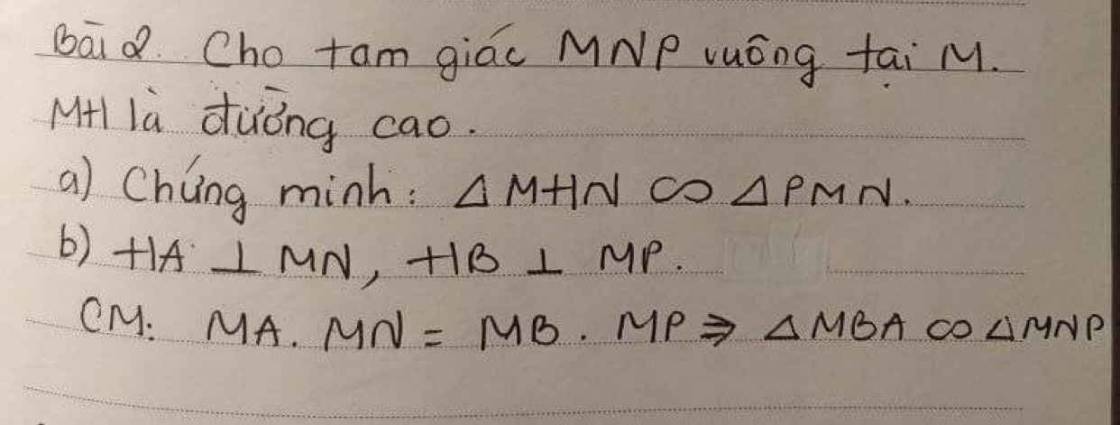 Bài 2. Cho tam giác MNP vuông tại M.
MH là đường cao.
a) Chứng minh: △MHN ∽ △PMN.
b) HA ⊥ MN, HB ⊥ MP.
CM: MA. MN = MB. MP ⇒ △MBA ∽ △MNP